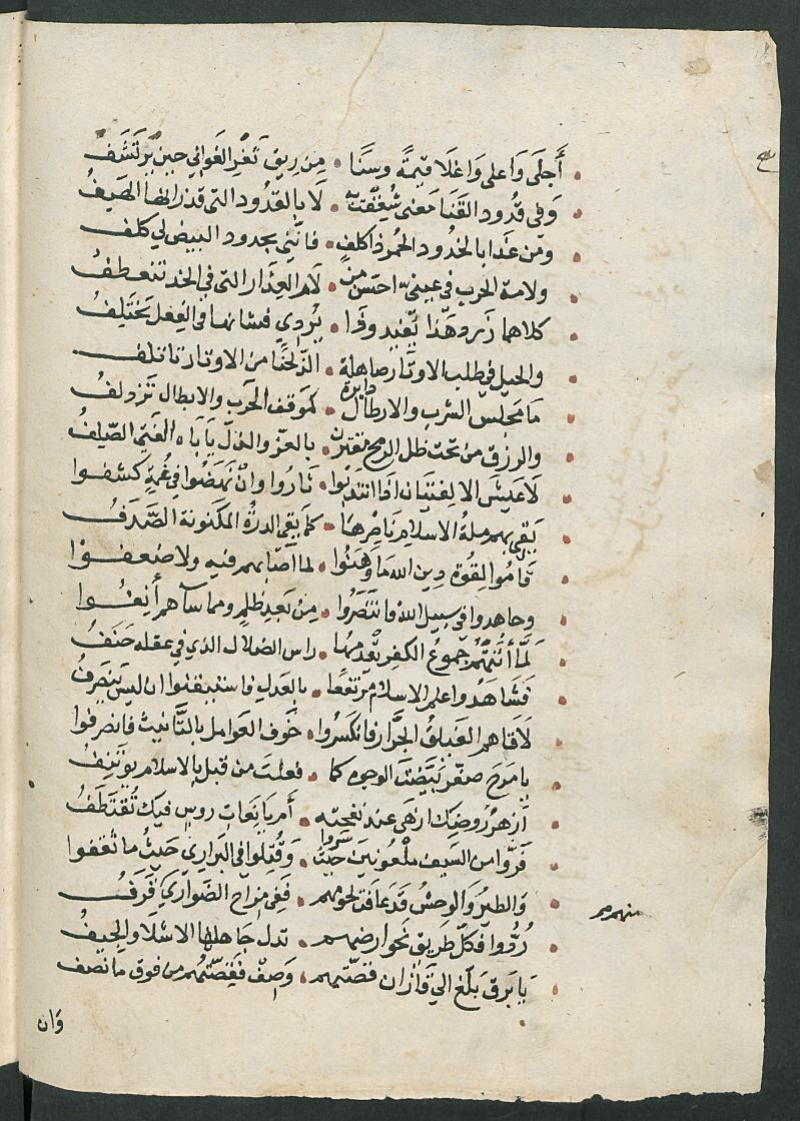 أَجلَى وَأعلى وَاغلَا قيمَةً وسنًا • مِن ريق ثغرِ الغَواني حين يُرتَشَفُ
وَفى قدُود القَنَا مَعنى شُغِفْتُ به • لَا بالقدُود التى قد زانها الهَيَفُ
ومن غدَا بالخدُود الحُمر ذا كلفٍ • فانّني بحدود البيض لي كلف
ولامة الحرب في عينيّ احسَنُ من • لام العِذَار التى في الخد تنعطفُ
كلاهما زرد هَذا يُفيد وذا • يُردي فشانهما في الفِعل يَختَلِفُ
والخيل في طلب الاوتار صاهلة • الذّ لحنًا من الاوتار تاتلف
مَا مَجلس الشرب والارطال دايرة • كموقف الحَرب والابطال تزدلفُ
والرزق من تحت ظل الرمح مقترن • بالعزّ والذلّ يَابَاه الفتى الصّلِفُ
لَا عيش الا لفتيان اذا انتدبُوا • ثاروا وانْ نهَضُوا في غُمةٍ كشفوا
يَقى بهم ملةُ الاسلام نَاصرهَا • كما يَقى الدرّةُ المكنونة الصَّدَفُ
قامُوا لِقُوة دِين الله مَا وهَنُوا • لما اصَابهم فيه ولا ضعفوا
وجاهدوا في سبيل الله فانتَصَرُوا • مِن بَعدِ ظلمٍ ومما سآءهم أَنِفُوا
لمَّا أتتهُم جموعُ الكفر يقْدمهَا • راس الضلال الذي في عقله حَنَفُ
فشاهَدُوا علم الاسلام مُرتفعًا • بالعَدلِ فاستيقنوا ان ليس ينصرفُ
لَاقاهم الفيلقُ الجَرّار فانكسَرُوا • خوف العوامل بالتَّأنيث فانصرفوا
يا مرجَ صفّر بَيّضتَ الوجوه كما • فعلت من قبلُ بالاسلام يؤتنفُ
أزهرُ رَوضكَ ازهَى عند نفحته • أم يَانِعات روسٍ فيك تُقتَطَفُ
فَرّوا من السَّيف ملعُونينَ حَيْثُ سَرَوا • وَقُتِلوا في البَراري حَيثُ ما ثقفوا
وَالطيرُ وَالوحشُ قد عَافت لحومهم • فَفي مِزاج الضّوَاري قَرَفُ
منهم
رُدُّوا فكلّ طَريق نَحوَ ارضهم • تدل جَاهلهَا الاشلا والجيفُ
يَا بَرق بَلّغ الي قازان قصّتهم • وَصِفْ فقِصّتُهُم من فوق ما نصف
وَان